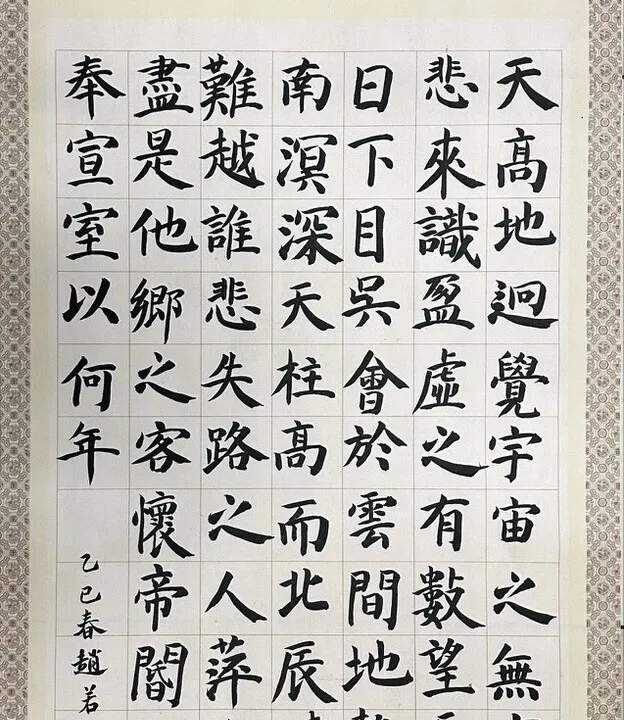 天高地迥覺宇宙之無
悲來識盈虛之有數望
日下目吳會於雲間地
南溟深天柱高而北辰
難越誰悲失路之人萍
盡是他鄉之客懷帝閽
奉宣室以何年
乙巳春趙若